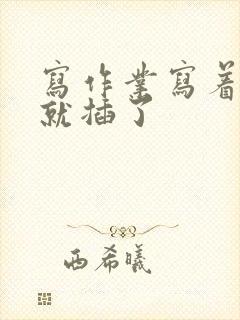 寫作業寫着
就插了
西希曦